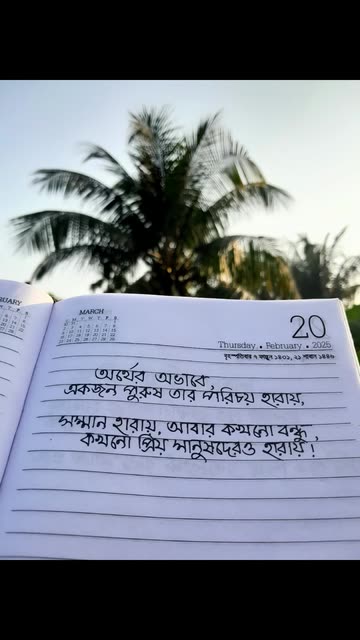 RUARY
MARCH
20
Thursday • February • 2025
বৃহস্পতিবার ৭ ফাল্গুন ১৪৩১, ২১ শাবান ১৪৪৬
অর্থের অভাবে,
একজন পুরুষ তার পরিচয় হারায়,
সম্মান হারায়, আবার কখনো বন্ধু,
কখনো প্রিয় মানুষদেরও হারায়!